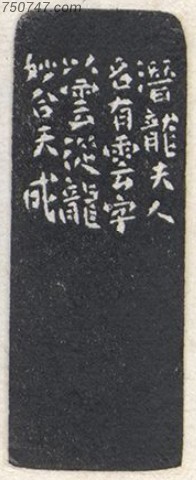 750747.com
潛龍夫人
名有雲字
以雲從龍
妙合天成